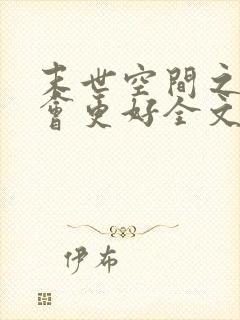 末世空間之
會更好全文
伊布